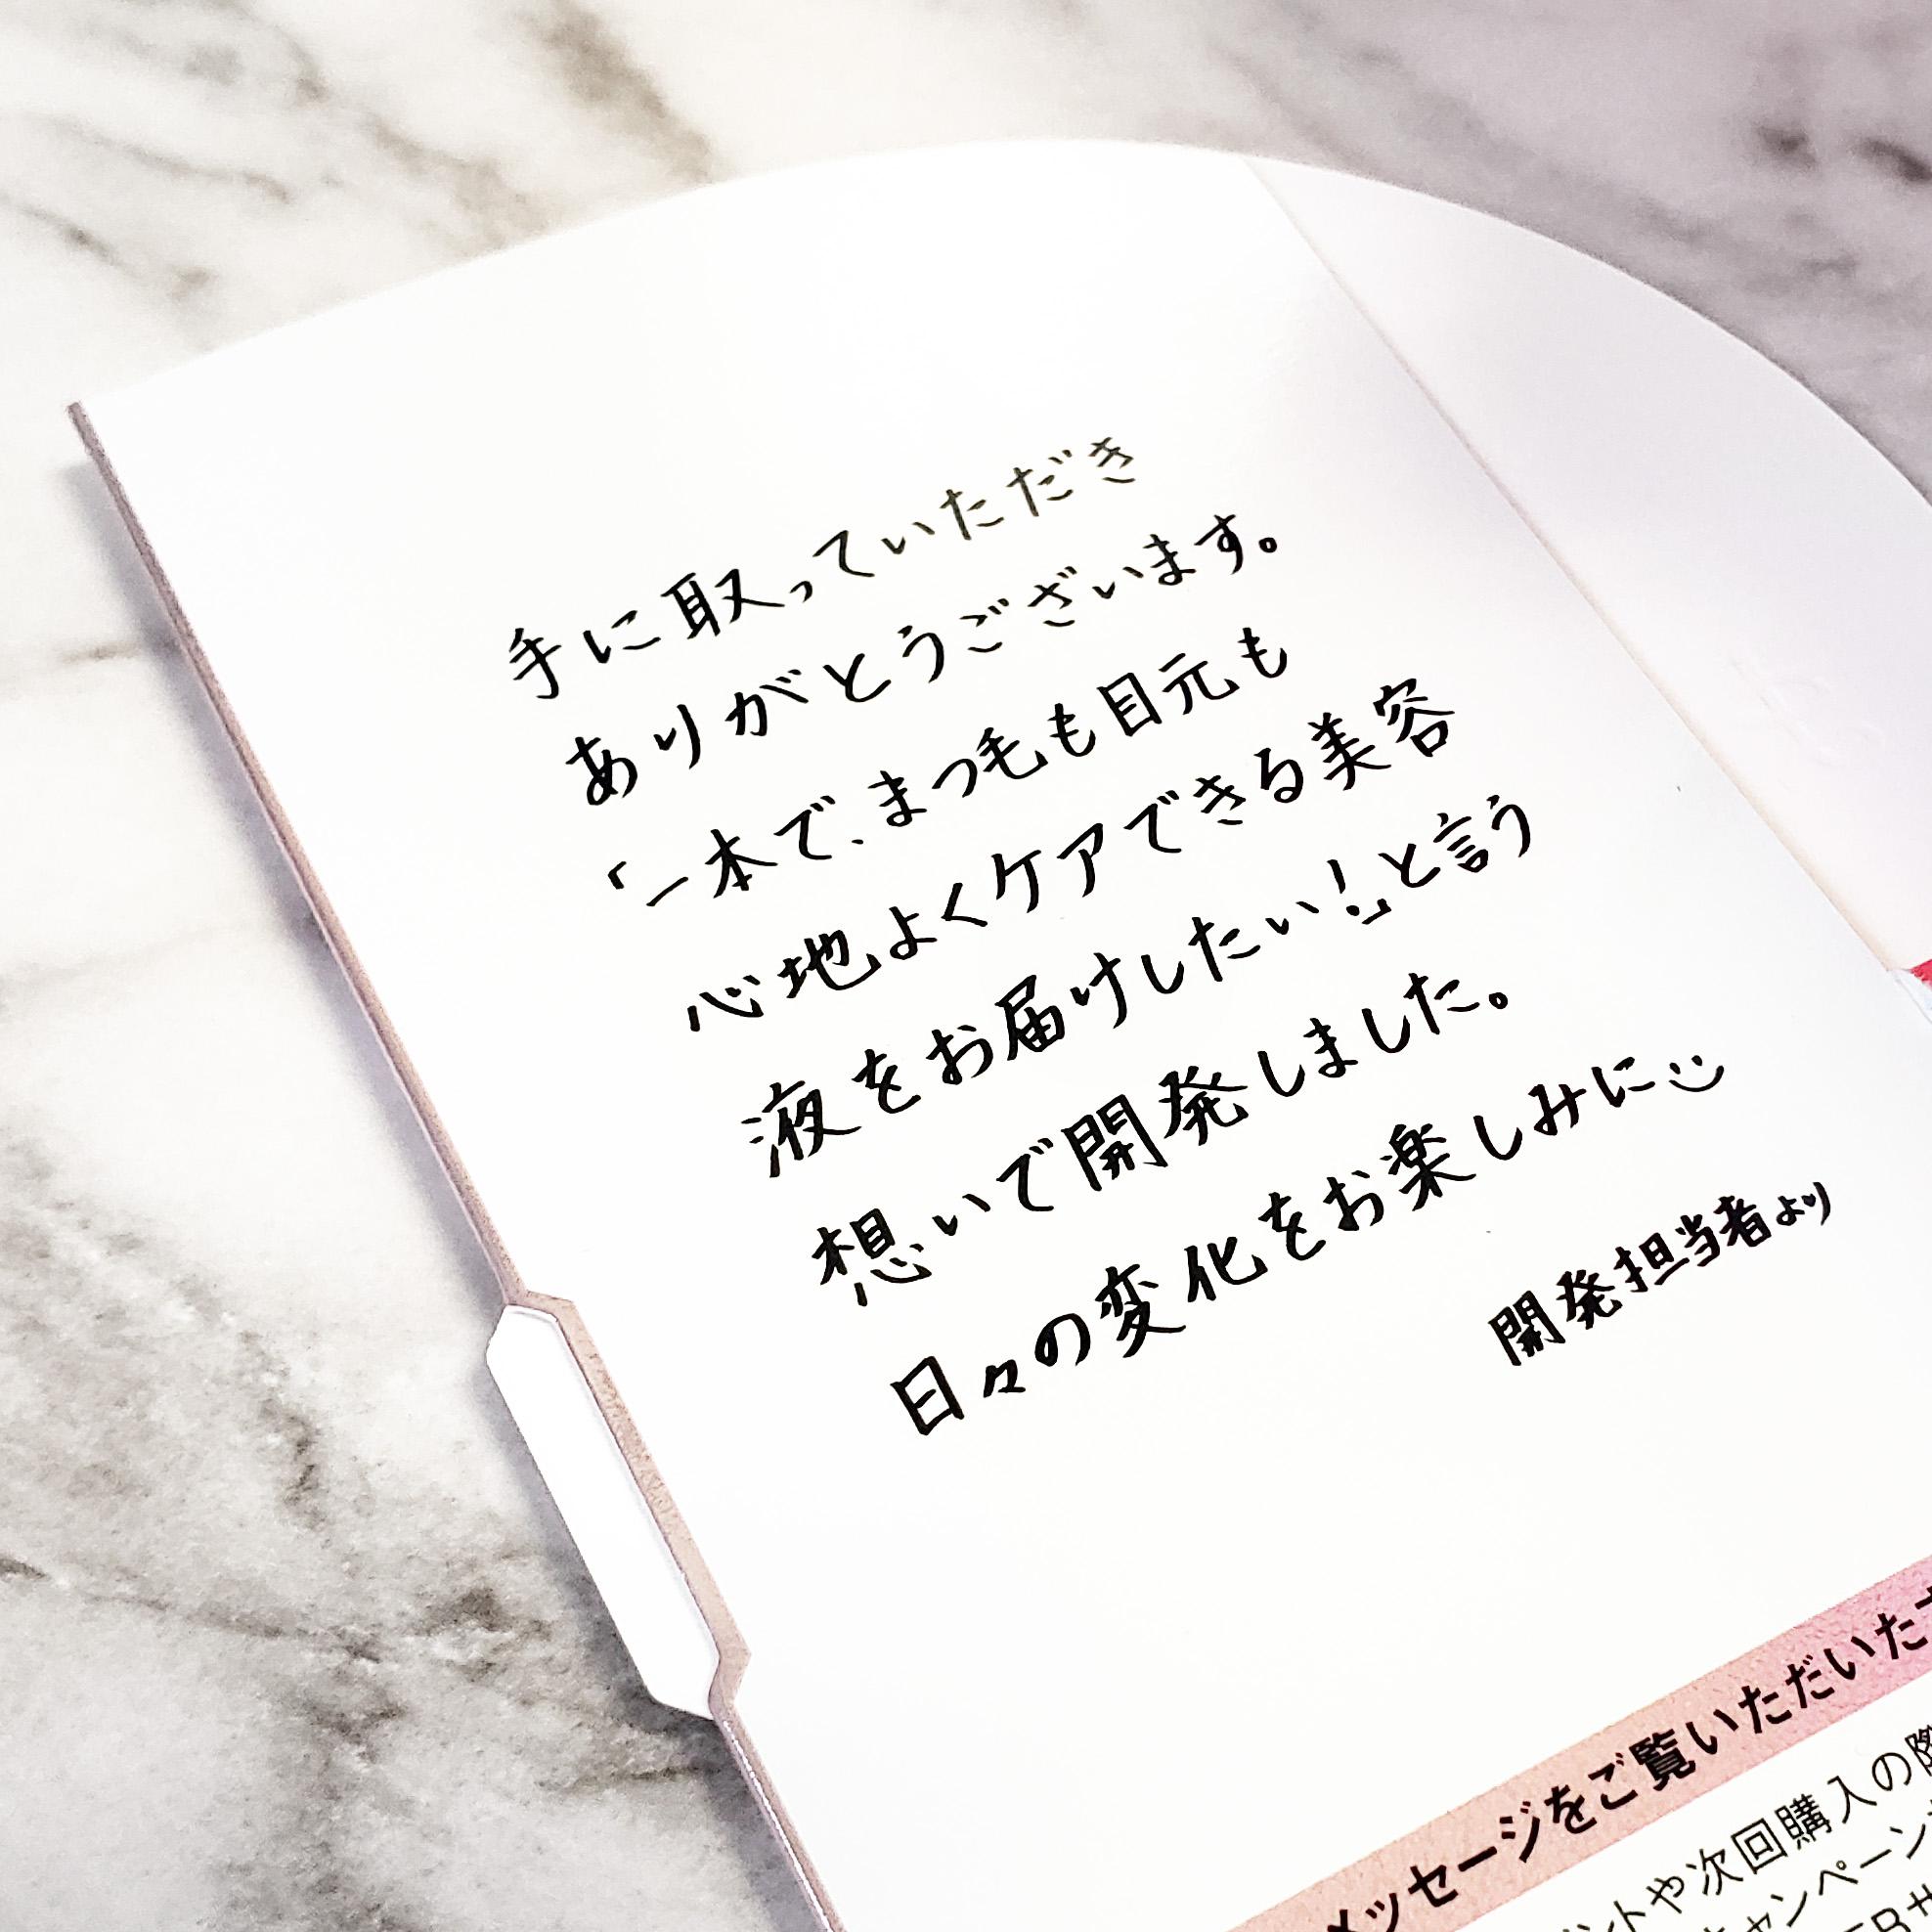 手に取っていただき
ありがとうございます。
「一本で、まつ毛も目元も
心地よくケアできる美容
液をお届けしたい!」と言う
想いで開発しました。
日々の変化をお楽しみに
開発担当者より
メッセージをご覧いただいた
ントや次回購入の際
キャンペーン